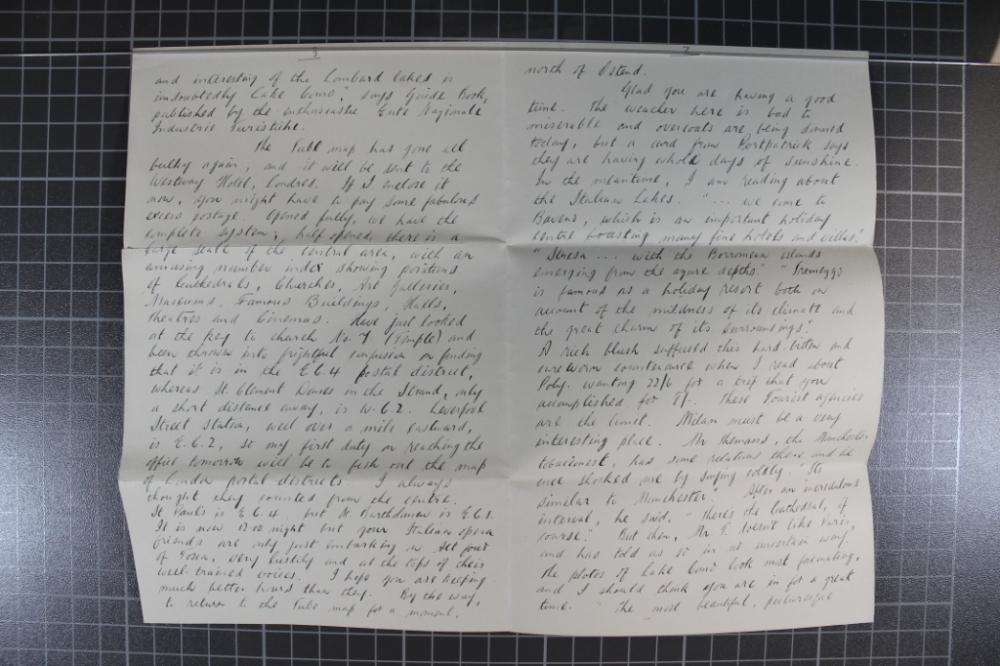 2
north of Ostend.
Glad you are having a good
time. The weather here is bad to
miserable and overcoats are being donned
today, but a card from Portpatrick says
they are having whole days of sunshine.
In the meantime, I am reading about
the Italian Lakes. "... we come to
Baveno, which is an important holiday
centre boasting many fine hotels and villas."
"Stresa ... with the Borromean islands
emerging from the azure depths." "Tremezzo
is famous as a holiday resort both on
account of the mildness of its climate and
the great charm of its surroundings."
A rich blush suffused this hard bitten and
careworn countenance when I read about
Poly. wanting 22/6 for a trip that you
accomplished for 8/-. These Tourist agencies
are the limit. Milan must be a very
interesting place. Mr the Manchester
tobacconist, has some relations there and he
once shocked me by saying coldly "Its
similar to Manchester". After an incredulous
interval, he said, "there's the Cathedral, of
course". But then, Mr F. doesn't like Paris,
and has told us so in no uncertain way.
The photos of Lake Como look most fascinating,
and I should think you are in for a great
time. "The most beautiful, picturesque
3
and interesting of the Lombard lakes is
undoubtedly Lake Como", says Guide Book,
published by the enthusiastic Ente Nazionale
Industrie Turistiche.
The Tube map has gone all
bulky again, and it will be sent to the
Westway Hotel, Londres. If I enclose it
now, you might have to pay some fabulous
excess postage. Opened fully, we have the
complete system; half opened, there is a
large scale of the central area, with an
amusing number index showing positions
of Cathedrals, Churches, Art Galleries,
Museums, Famous Buildings, Halls,
theatres and Cinemas. Have just looked
at the key to church No. 7 (Temple) and
been thrown into frightful confusion on finding
that it is in the E.C.4 postal district,
whereas St Clement Danes in the Strand, only
a short distance away, is W.C.2. Liverpool
Street Station, well over a mile eastward,
is E.C.2, so my first duty on reaching the
office tomorrow will be to fish out the map
of London postal districts. I always
thought they counted from the centre.
St Pauls is E.C.4 but St Bartholomew is E.C.1.
It is now midnight but your Italian opera
friends are only just embarking on Act four
of Tosca, very lustily and at the tops of their
well-trained voices. I hope you are keeping
much better hours than they. By the way,
to return to the Tube map for a moment,